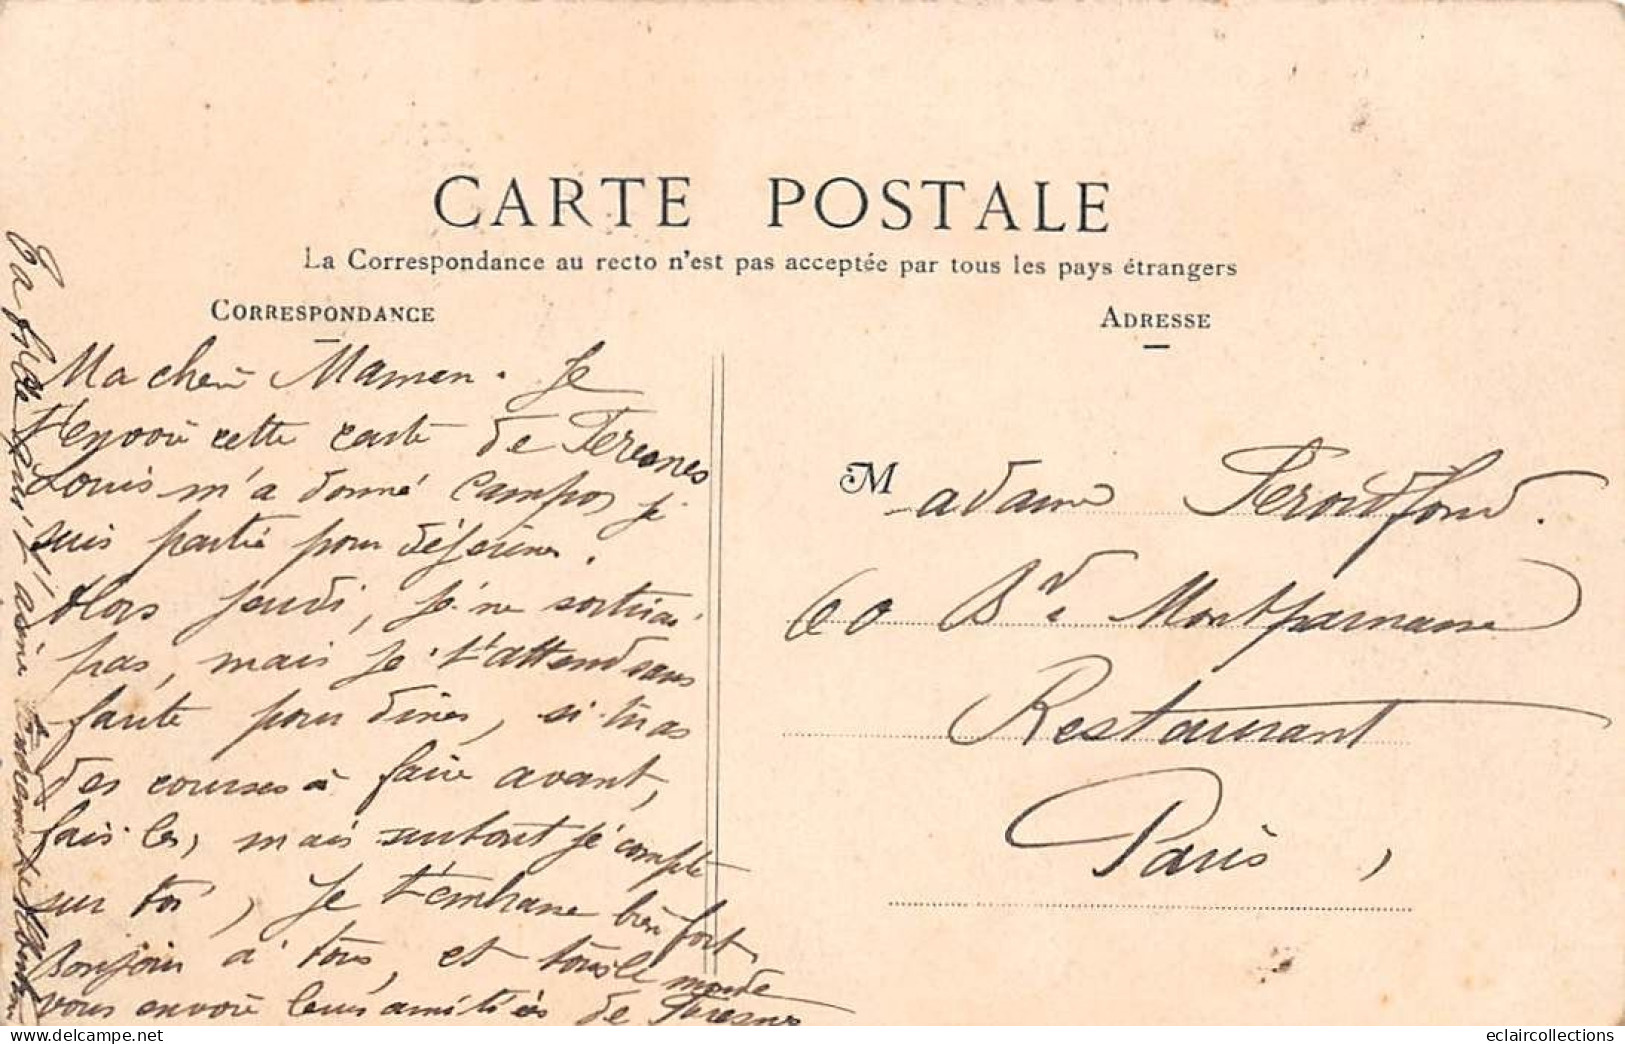 CARTE POSTALE
La Correspondance au recto n'est pas acceptée par tous les pays étrangers
CORRESPONDANCE
ADRESSE
Ma cherè Maman. Je
t'envoie cette carte de Fresnes
Louis m'a donné campos je
suis partie pour déjeuner.
Alors jeudi, je ne sortirai
pas, mais je t'attend sans
faute pour diner, si tu as
des courses à faire avant,
fais les, mais surtout je compte
sur toi, Je t'embrasse bien fort
Bonjour à tous, et tous le monde
vous envoie leurs amitiés de Fresnes
Ta fille qui t'aime
Madame Froidfond.
60 Bd Montparnasse
Restaurant
Paris,
eclaircollections